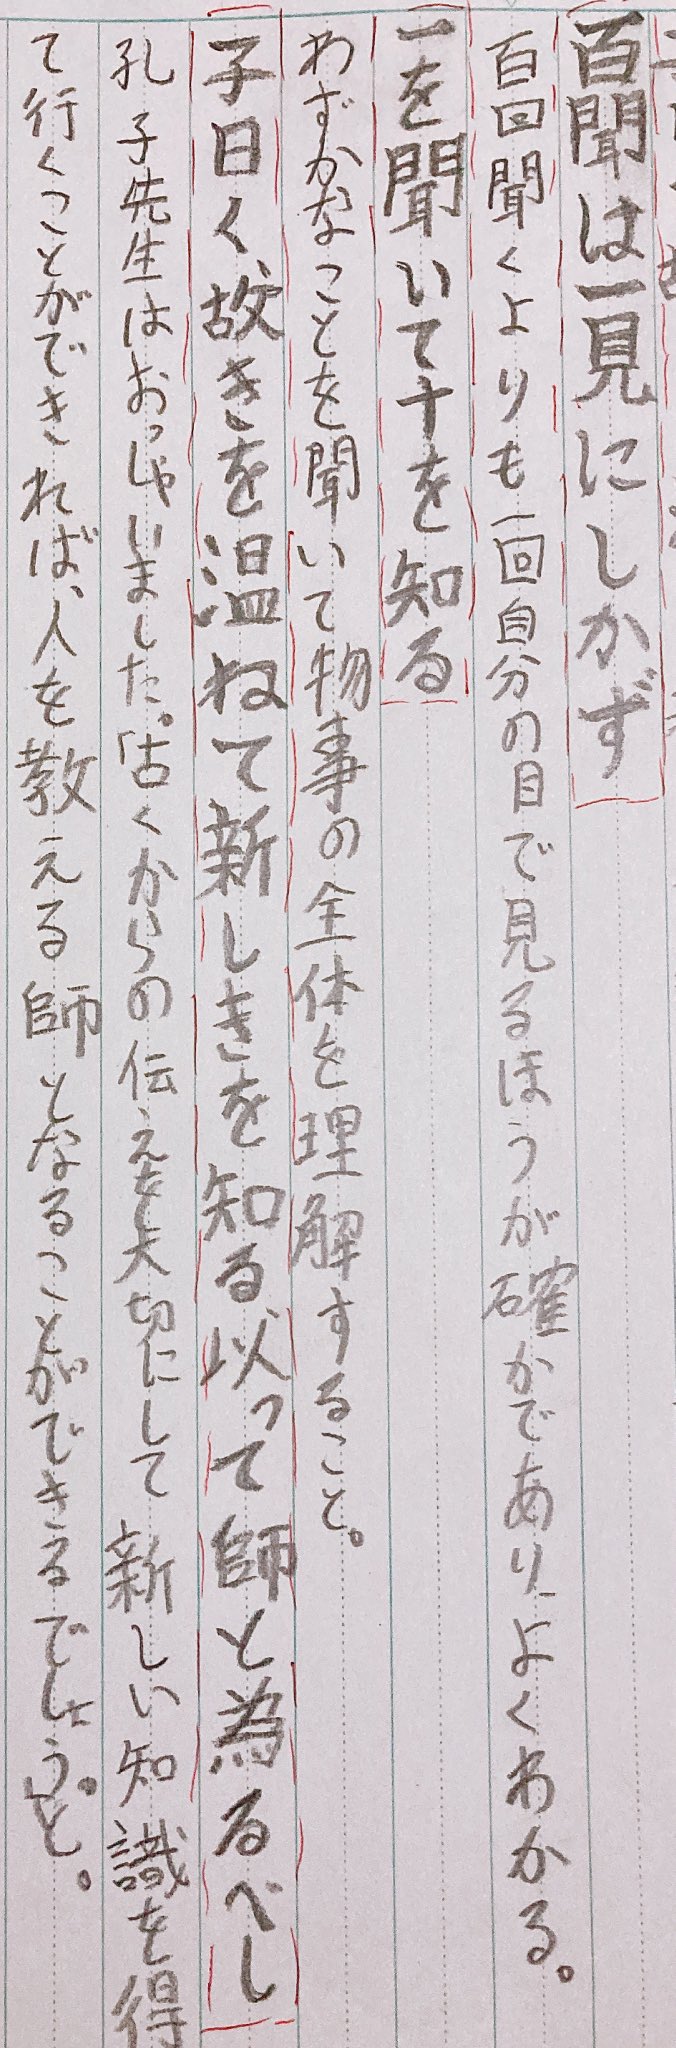 百聞は一見にしかず
百回聞くよりも一回自分の目で見るほうが確かであり、よくわかる。
一を聞いて十を知る
わずかなことを聞いて物事の全体を理解すること。
子曰く、故きを温ねて新しきを知る以って師と為るべし
孔子先生はおっしゃいました。「古くからの伝えを大切にして新しい知識を得
て行くことができれば、人を教える師となることができるでしょう。」と。